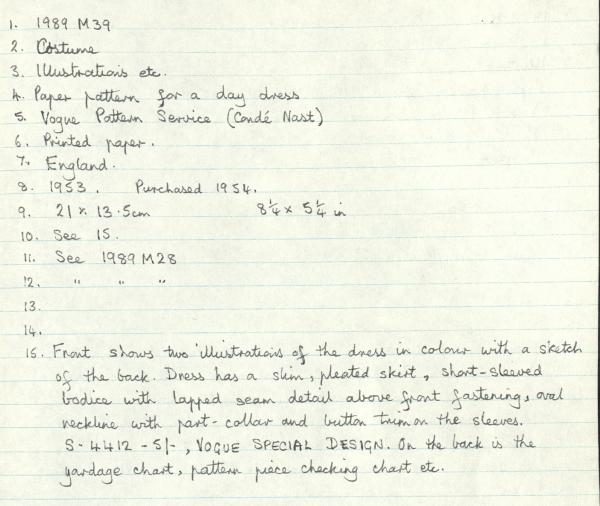 1. 1989 M39
2. Costume
3. Illustrations etc.
4. Paper pattern for a day dress
5. Vogue Pattern Service (Condé Nast)
6. Printed paper.
7. England.
8. 1953. Purchased 1954.
9. 21 x 13.5cm 8¼ x 5¼ in
10. See 15.
11. See 1989 M28
12. " " "
13.
14.
15. Front shows two illustrations of the dress in colour with a sketch
of the back. Dress has a slim, pleated skirt, short-sleeved
bodice with lapped seam detail above front fastening, oval
neckline with part-collar and button trim on the sleeves.
S-4412-5/-, VOGUE SPECIAL DESIGN. On the back is the
yardage chart, pattern piece checking chart etc.